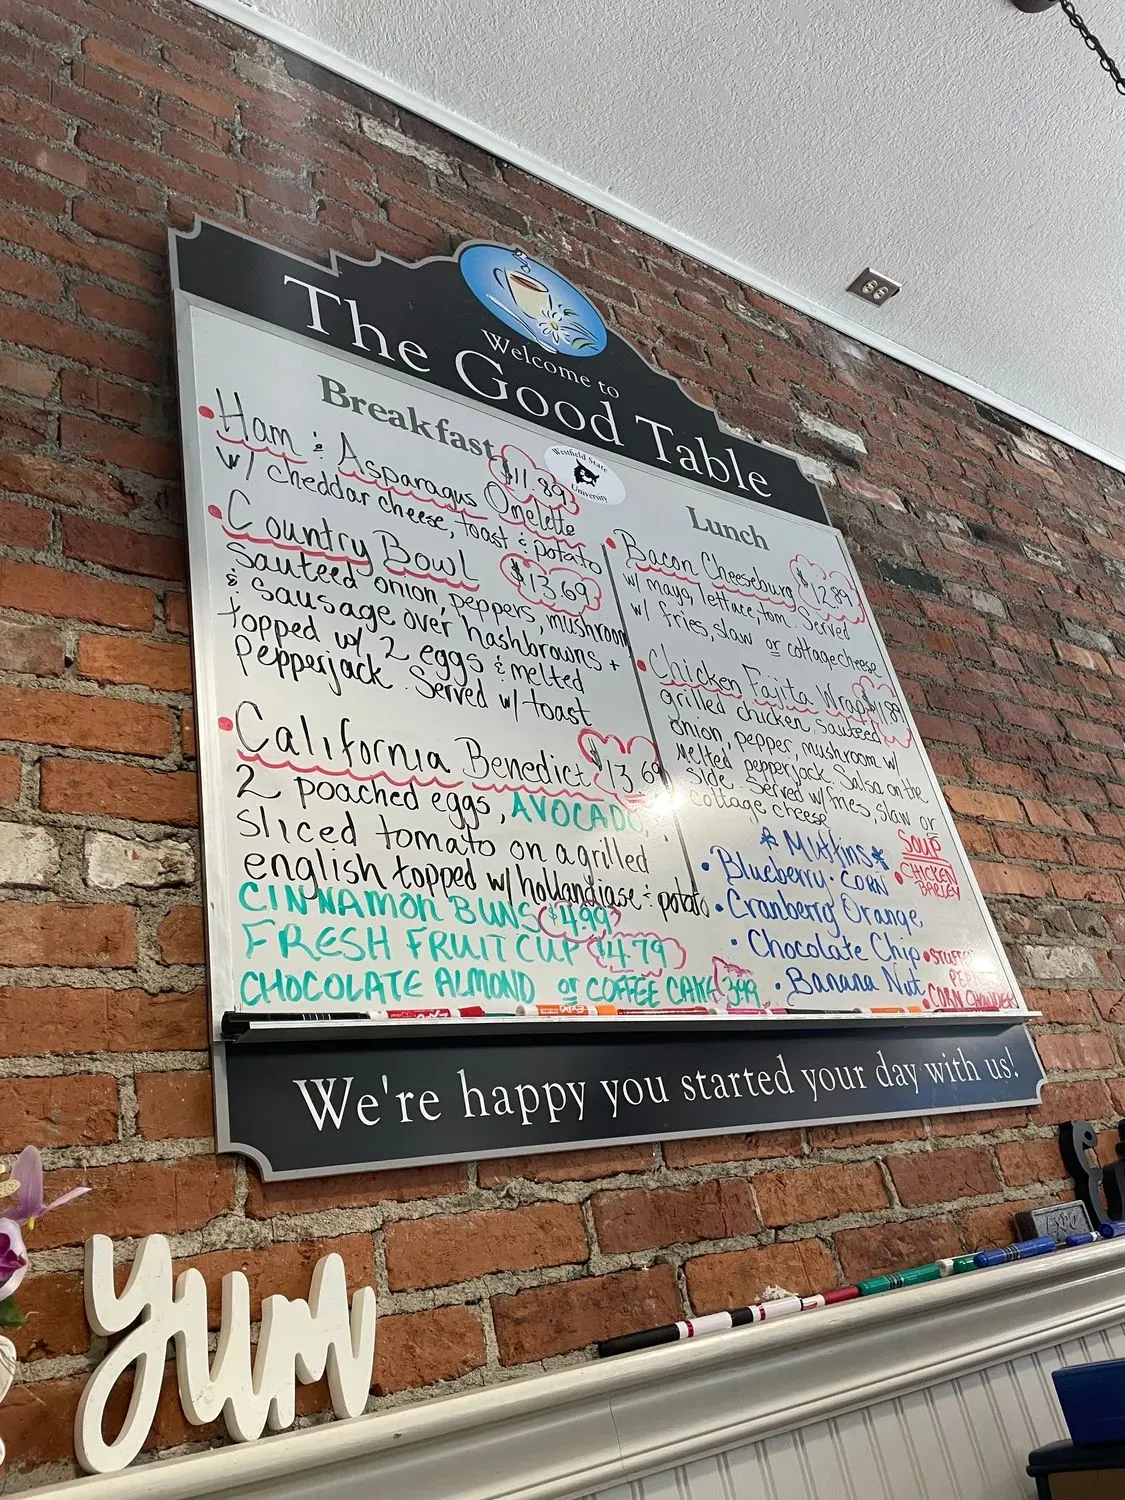 Welcome to
The Good Table
Westfield State
University
Breakfast
Ham & Asparagus Omelette $11.89
w/ cheddar cheese, toast & potato
Country Bowl $13.69
Sauteed onion, peppers, mushroom
& sausage over hashbrowns +
topped w/ 2 eggs & melted
Pepperjack. Served w/ toast
California Benedict $13.69
2 poached eggs, AVOCADO,
sliced tomato on a grilled
english topped w/ hollandiase & potato
CINNAMON BUNS $4.99
FRESH FRUIT CUP $4.79
CHOCOLATE ALMOND or COFFEE CAKE 3.99
Lunch
Bacon Cheeseburg $12.89
w/ mayo, lettace, tom. Served
w/ fries, slaw or cottage cheese
Chicken Fajita Wrap $11.89
grilled chicken, sauteed
onion, pepper, mushroom w/
Melted pepperjack. Salsa on the
side. Served w/ fries, slaw or
cottage cheese
* Muffins *
• Blueberry • CORN
• Cranberry Orange
• Chocolate Chip
• Banana Nut
SOUP
• CHICKEN
BARLEY
• CORN CHOWDER
We're happy you started your day with us!
yum